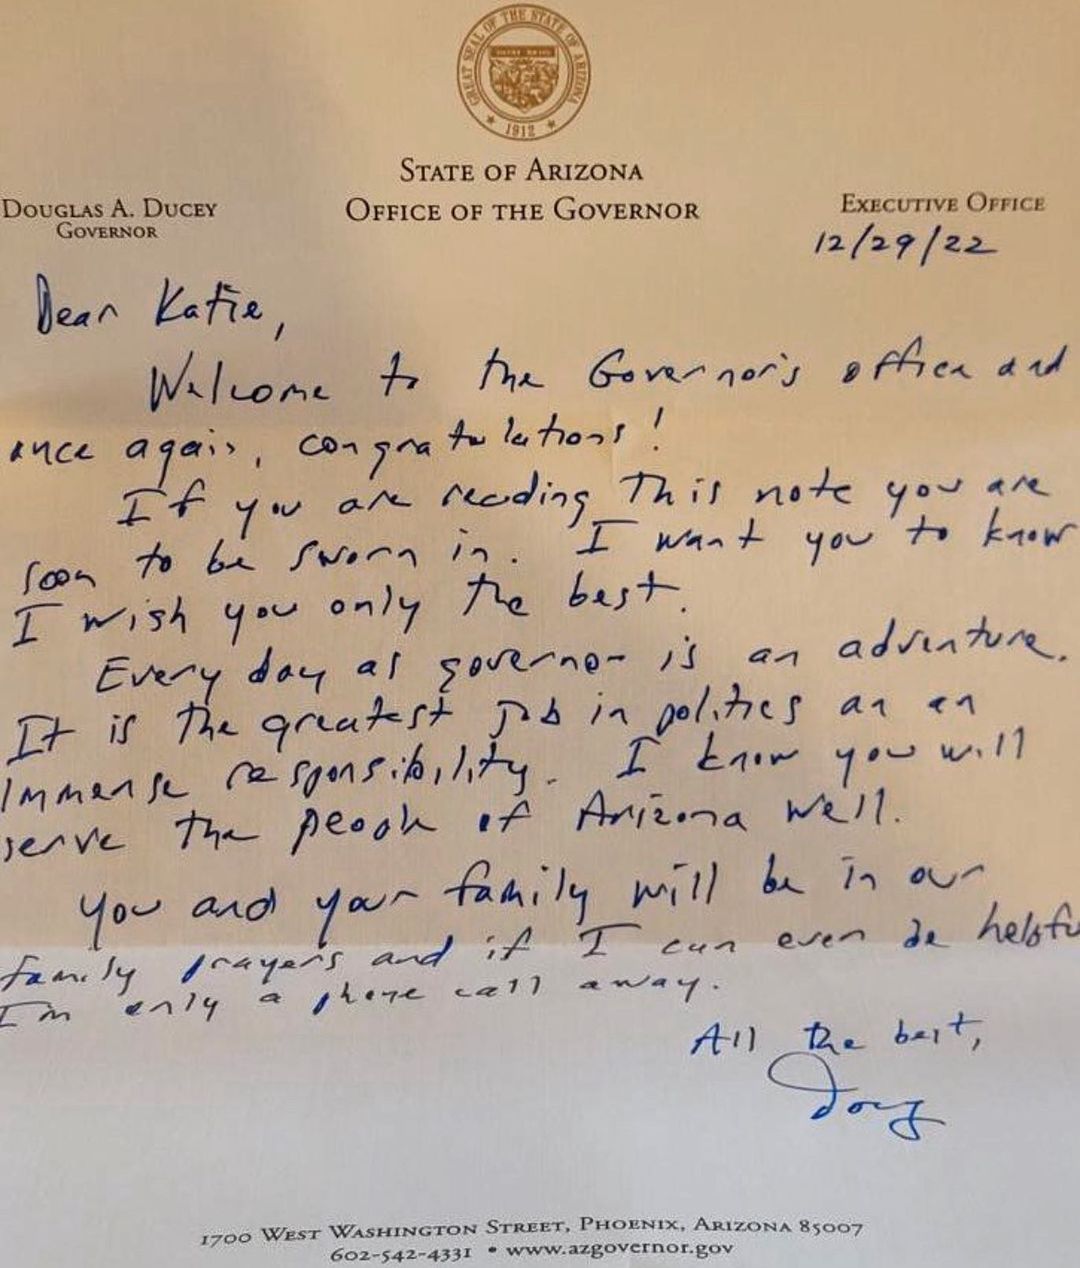 GREAT SEAL OF THE STATE OF ARIZONA
DITAT DEUS
1912
STATE OF ARIZONA
DOUGLAS A. DUCEY
GOVERNOR
OFFICE OF THE GOVERNOR
EXECUTIVE OFFICE
12/29/22
Dear Katie,
Welcome to the Governor's office and
once again, congratulations!
If you are reading this note you are
soon to be sworn in. I want you to know
I wish you only the best.
Every day as governor is an adventure.
It is the greatest job in politics an an
immense responsibility. I know you will
serve the people of Arizona well.
You and your family will be in our
family prayers and if I can ever be helpfu
I'm only a phone call away.
All the best,
Doug
1700 WEST WASHINGTON STREET, PHOENIX, ARIZONA 85007
602-542-4331 • www.azgovernor.gov